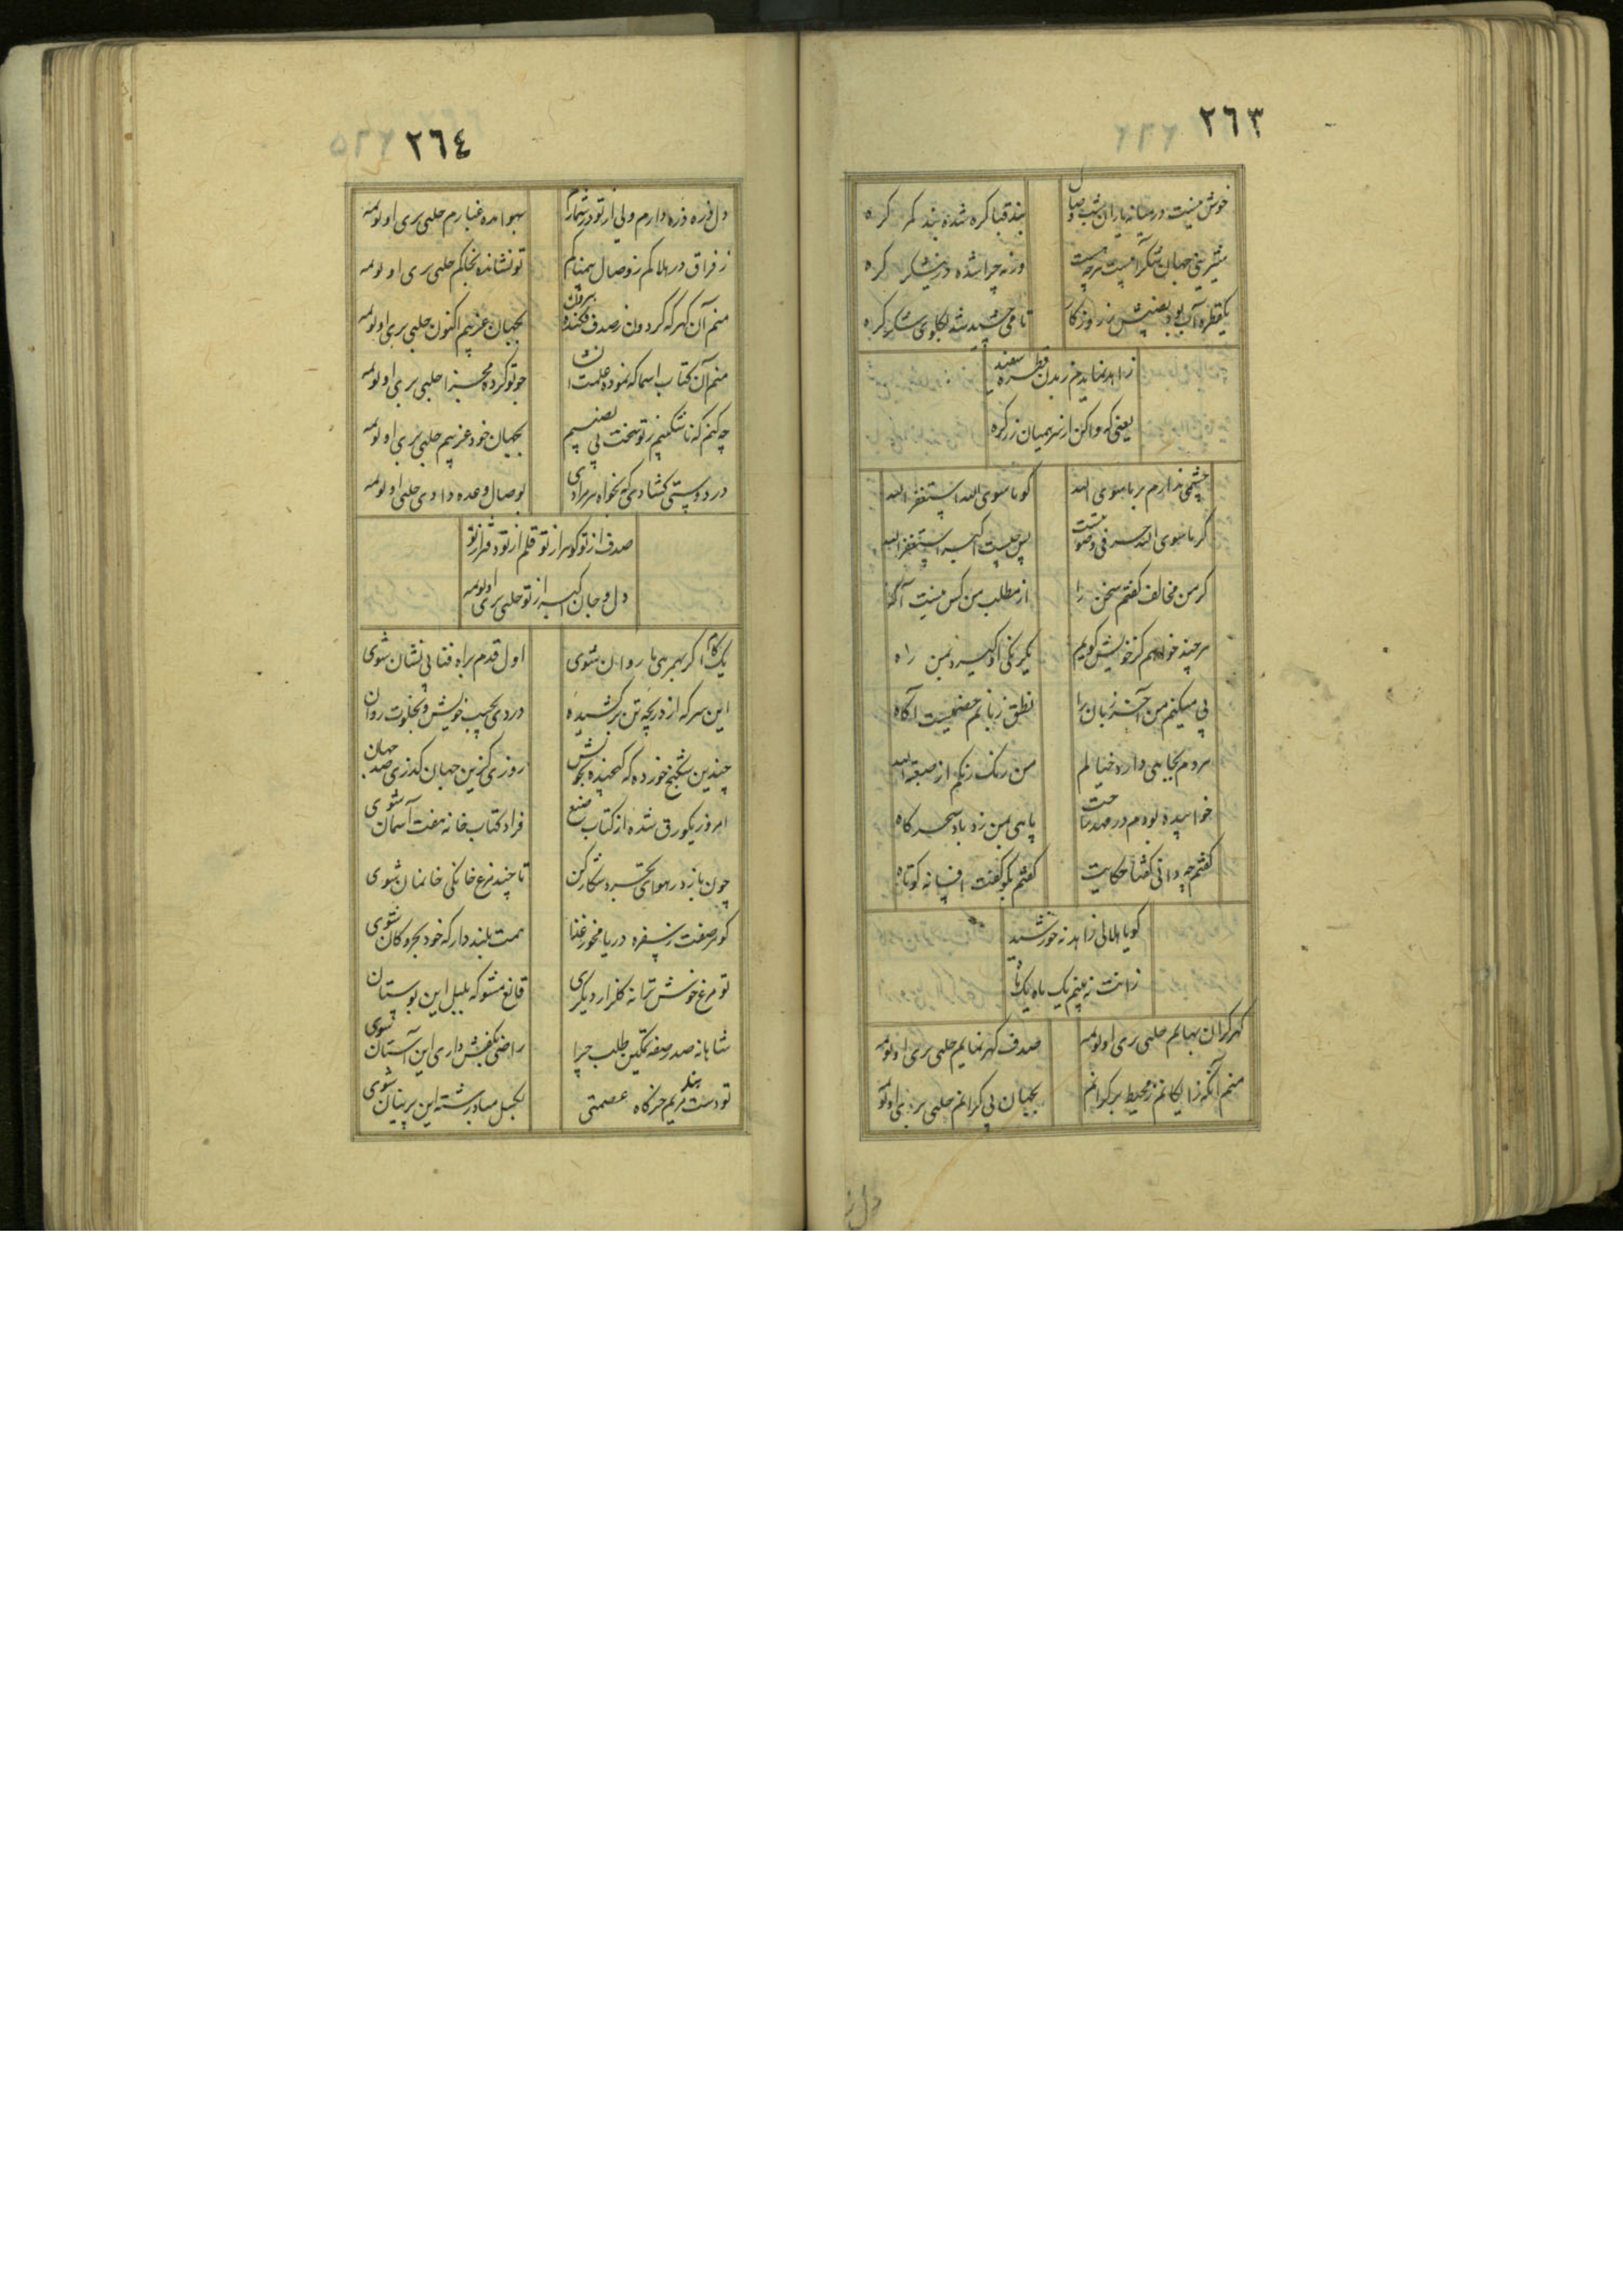 ٢٦٣
خوش نیست در میانه یاران شب وصال
بند قبا کره شده بند کمر کره
شیرینی جهان
ورنه چرا شده در نیشکر کره
یکقطره آب بود نصیبش ز روزکار
تا می شد بکلوی شکر کره
زاهد نماید م ز بدن قطره سفید
یعنی که واکن از سر همیان زر کره
چشمی ندارم بر ماسوی الله
کو ماسوی الله استغفر الله
کر ماسوی الله حرفی و صوتیست
پس چیست اکبر استغفر الله
کر من مخالف کفتم سخن را
از مطلب من کس نیست آکه
هرچند خواهم کز خویش کویم
یکرنکی او کیرد بمن راه
پی میکنم من آخر زبان را
نطق زبانم خصمیست آکاه
مردم بجاهی دارد خیالم
من رنک رنکم از صبغة الله
خوابیده بودم در مهد
پاهی بمن زد باد سحرکاه
کفتم چه دانی کفتا حکایت
کفتم بکو کفت افسانه کوتاه
کویا هلالی زاهد نه خورشید
زانت نه بینم یک ماه یک ماه
کهر کران بهایم حلبی بری اولوبمه
صدف کهر نمایم حلبی بری اولوبمه
منم آنکه زایکانم ز محیط بر کرانم
بجهان بی کرانم حلبی بری اولوبمه
٢٦٤
دل ذره ذره دارم ولی از تو در شمارم
بهوا مده غبارم حلبی بری اولوبمه
ز فراق در هلاکم ز وصال بیمناکم
تو نشانده بخاکم حلبی بری اولوبمه
منم آن کهر که کردون ز صدف فکنده بیرون
بجهان عزیزم اکنون حلبی بری اولوبمه
منم آن کتاب اسما که نموده
چو تو کرده مجزا حلبی بری اولوبمه
چه کنم که ناشکیبم ز تو سخت بی نصیبم
بجهان خود غریبم حلبی بری اولوبمه
در دوستی کشادی که بخواه هر مرادی
بوصال وعده دادی حلبی اولوبمه
صدف از تو کوهر از تو قلم از تو دفتر از تو
دل و جان اکبر از تو حلبی بری اولوبمه
یک کام اکر بهمرهی ما روان شوی
اول قدم براه فنا بی نشان شوی
این سر که از دریچه تن برکشیده
دزدی بجیب خویش و بخلوت روان
چندین شکنج خورده که کنجیده بجوش
روزی کزین جهان کذری صد جهان
امروز یکورق شده از کتاب صنع
فردا کتاب خانه هفت آسمان شوی
چون باز در هوای تجرد شکار کن
تا چند مرغ خانکی خانمان شوی
کوهر صفت ز سفره دریا مخور غذا
همت بلند دار که خود بحر و کان شوی
تو مرغ خوش ترانه کلزار دیکری
قانع مشو که بلبل این بوستان
شاهانه صدر صفه تمکین طلب چرا
راضی بکفش داری این آستان شوی
تو دست بند مریم خرکاه عصمتی
مبادا رشته این پرنیان شوی